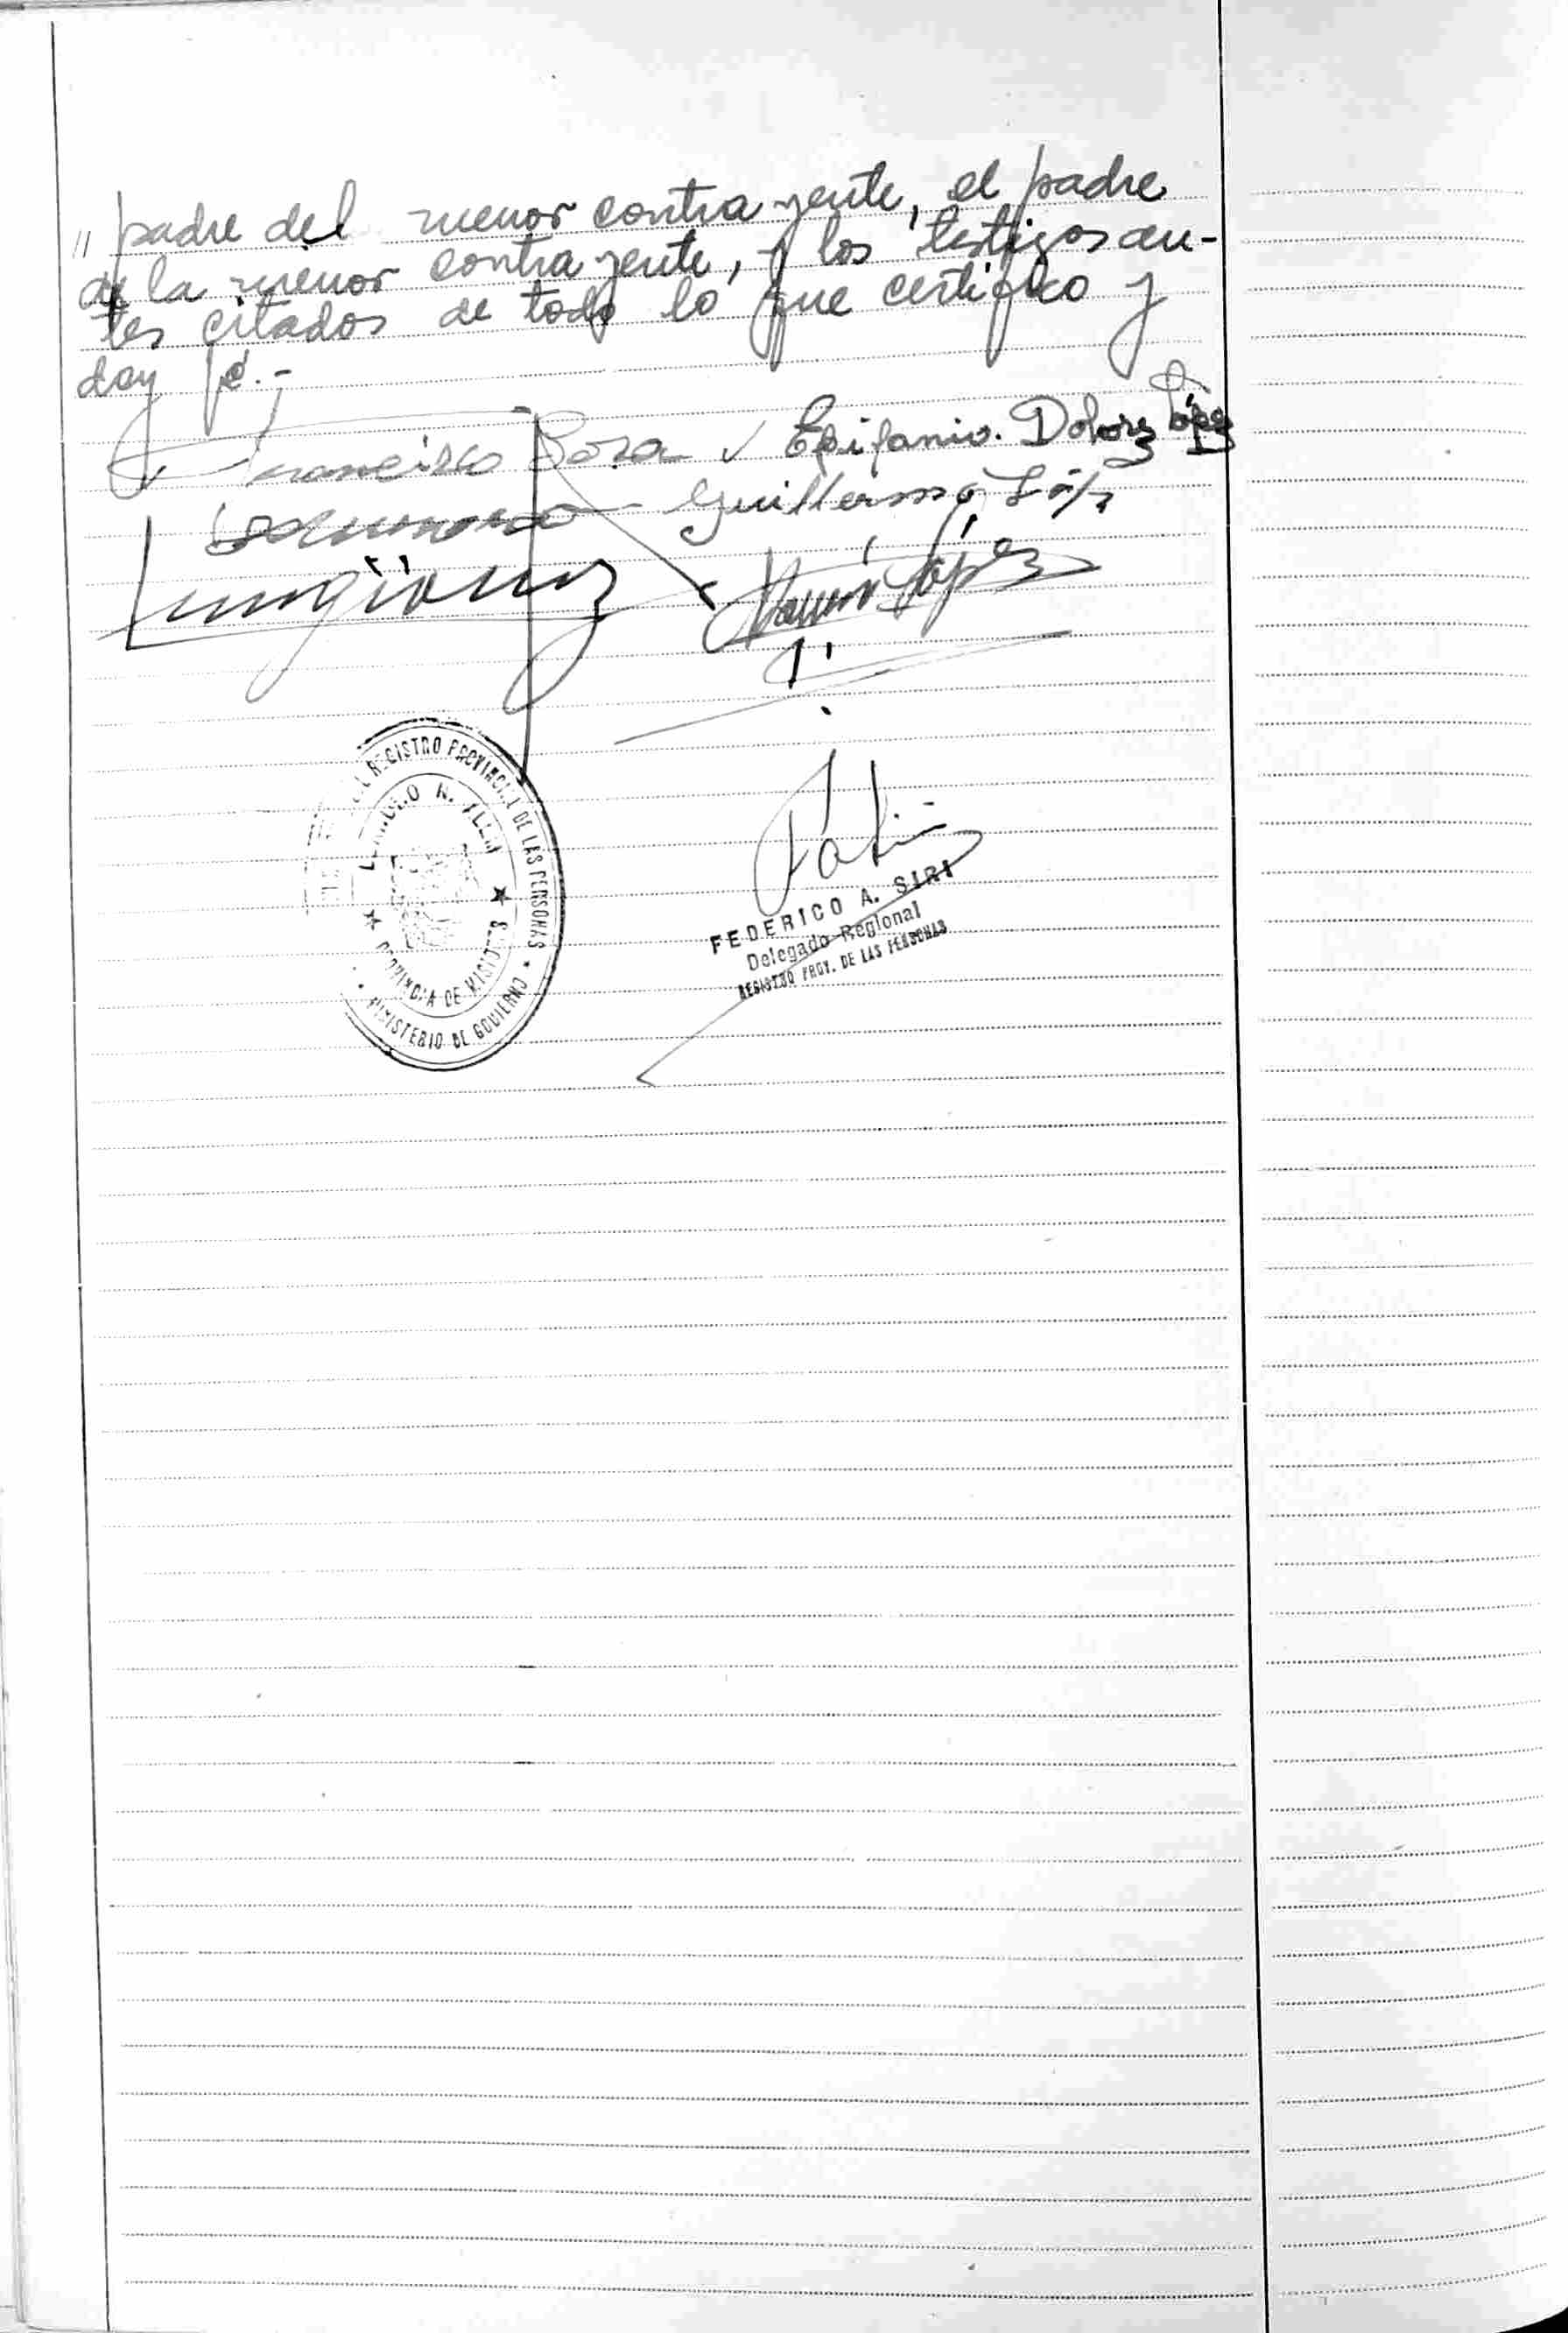 " padre del menor contrayente, el padre
de la menor contrayente, y los testigos an-
tes citados de todo lo que certifico y
doy fé.-
Francisco Sosa Epifanio. Dolores López
Guillermo
Ramón López
REGISTRO PROVINCIAL DE LAS PERSONAS
LEANDRO N. ALEM
PROVINCIA DE MISIONES
MINISTERIO DE GOBIERNO
FEDERICO A. SIRI
Delegado Regional
REGISTRO PROV. DE LAS PERSONAS